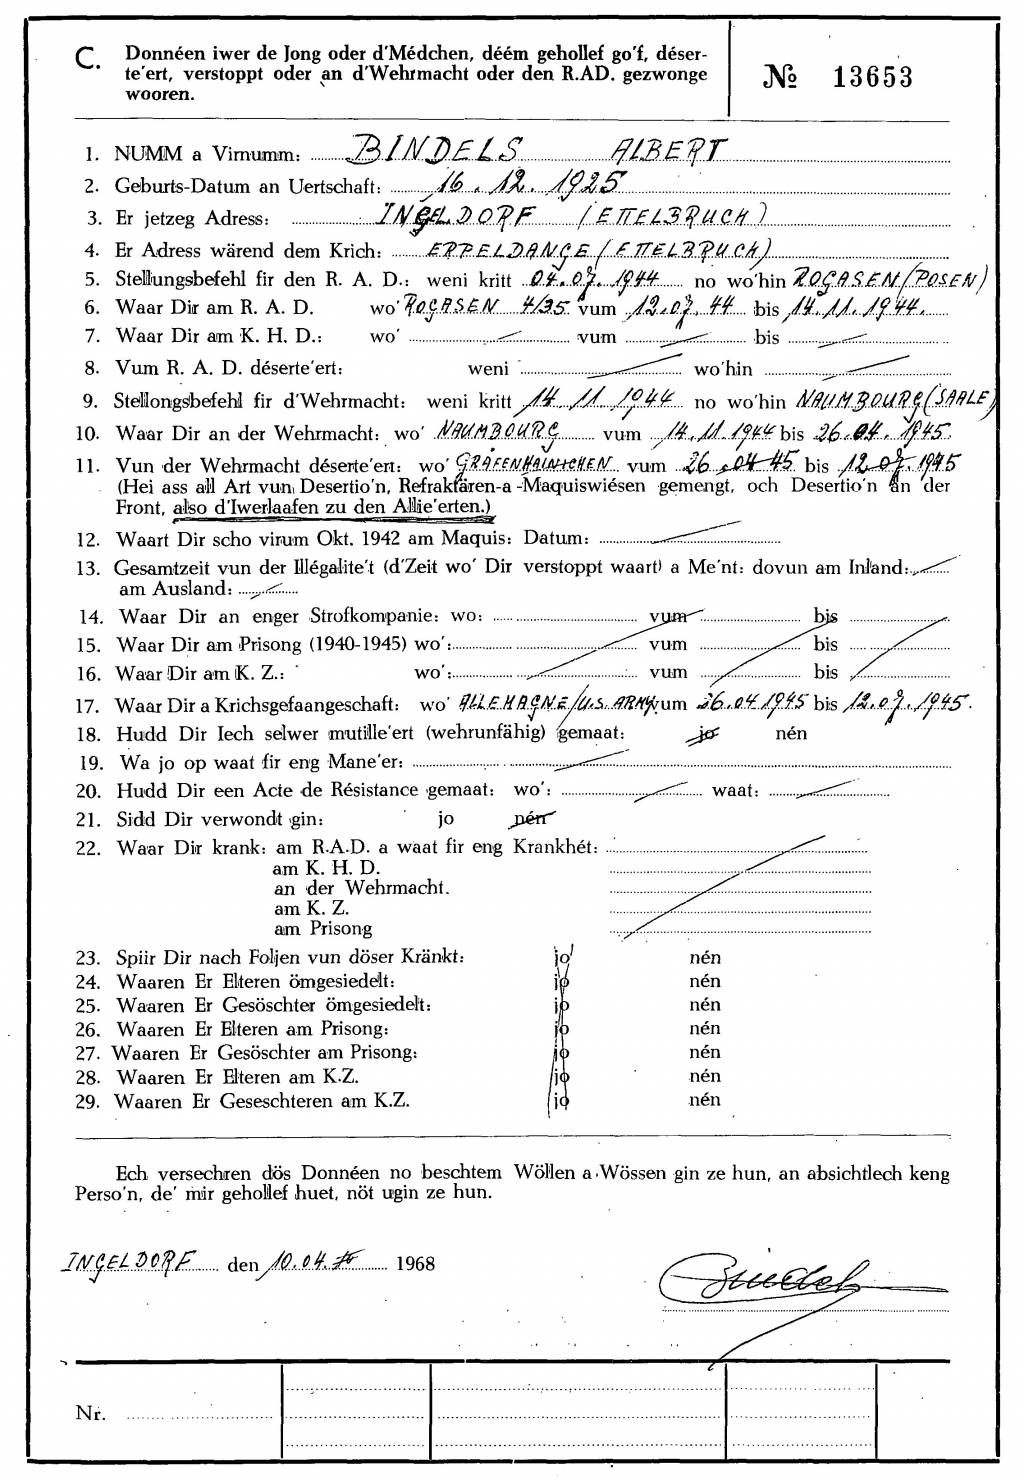 C. Donnéen iwer de Jong oder d'Médchen, déém gehollef go'f, déser-
te'ert, verstoppt oder an d'Wehrmacht oder den R.AD. gezwonge
wooren.
№ 13653
1. NUMM a Virnumm: BINDELS ALBERT
2. Geburts-Datum an Uertschaft: 16.12.1925
3. Er jetzeg Adress: INGELDORF (ETTELBRUCH)
4. Er Adress wärend dem Krich: ERPELDANGE (ETTELBRUCH)
5. Stellungsbefehl fir den R. A. D.: weni kritt 04.07.1944 no wo'hin ROGASEN (POSEN)
6. Waar Dir am R. A. D. wo' ROGASEN 4/35 vum 12.07.44 bis 14.11.1944.
7. Waar Dir am K. H. D.: wo' vum bis
8. Vum R. A. D. déserte'ert: weni wo'hin
9. Stellongsbefehl fir d'Wehrmacht: weni kritt 14 11 1944 no wo'hin NAUMBOURG (SAALE)
10. Waar Dir an der Wehrmacht: wo' NAUMBOURG vum 14.11.1944 bis 26.04.1945.
11. Vun der Wehrmacht déserte'ert: wo' GRÄFENHAINICHEN vum 26.04 45 bis 12.07.1945
(Hei ass all Art vun Desertio'n, Refraktären-a-Maquiswiésen gemengt, och Desertio'n an der
Front, also d'Iwerlaafen zu den Allie'erten.)
12. Waart Dir scho virum Okt. 1942 am Maquis: Datum:
13. Gesamtzeit vun der Illégalite't (d'Zeit wo' Dir verstoppt waart) a Me'nt: dovun am Inland:
am Ausland:
14. Waar Dir an enger Strofkompanie: wo: vum bis
15. Waar Dir am Prisong (1940-1945) wo': vum bis
16. Waar Dir am K. Z.: wo': vum bis
17. Waar Dir a Krichsgefaangeschaft: wo' ALLEMAGNE/U.S. ARMY vum 26.04 1945 bis 12.07.1945.
18. Hudd Dir Iech selwer mutille'ert (wehrunfähig) gemaat: jo nén
19. Wa jo op waat fir eng Mane'er:
20. Hudd Dir een Acte de Résistance gemaat: wo': waat:
21. Sidd Dir verwondt gin: jo nén
22. Waar Dir krank: am R.A.D. a waat fir eng Krankhét:
am K. H. D.
an der Wehrmacht.
am K. Z.
am Prisong
23. Spiir Dir nach Foljen vun döser Kränkt: jo nén
24. Waaren Er Elteren ömgesiedelt: jo nén
25. Waaren Er Gesöschter ömgesiedelt: jo nén
26. Waaren Er Elteren am Prisong: jo nén
27. Waaren Er Gesöschter am Prisong: jo nén
28. Waaren Er Elteren am K.Z. jo nén
29. Waaren Er Geseschteren am K.Z. jo nén
Ech versechren dös Donnéen no beschtem Wöllen a Wössen gin ze hun, an absichtlech keng
Perso'n, de' mir gehollef huet, nöt ugin ze hun.
INGELDORF den 10.04. 1968
Bindels
Nr.